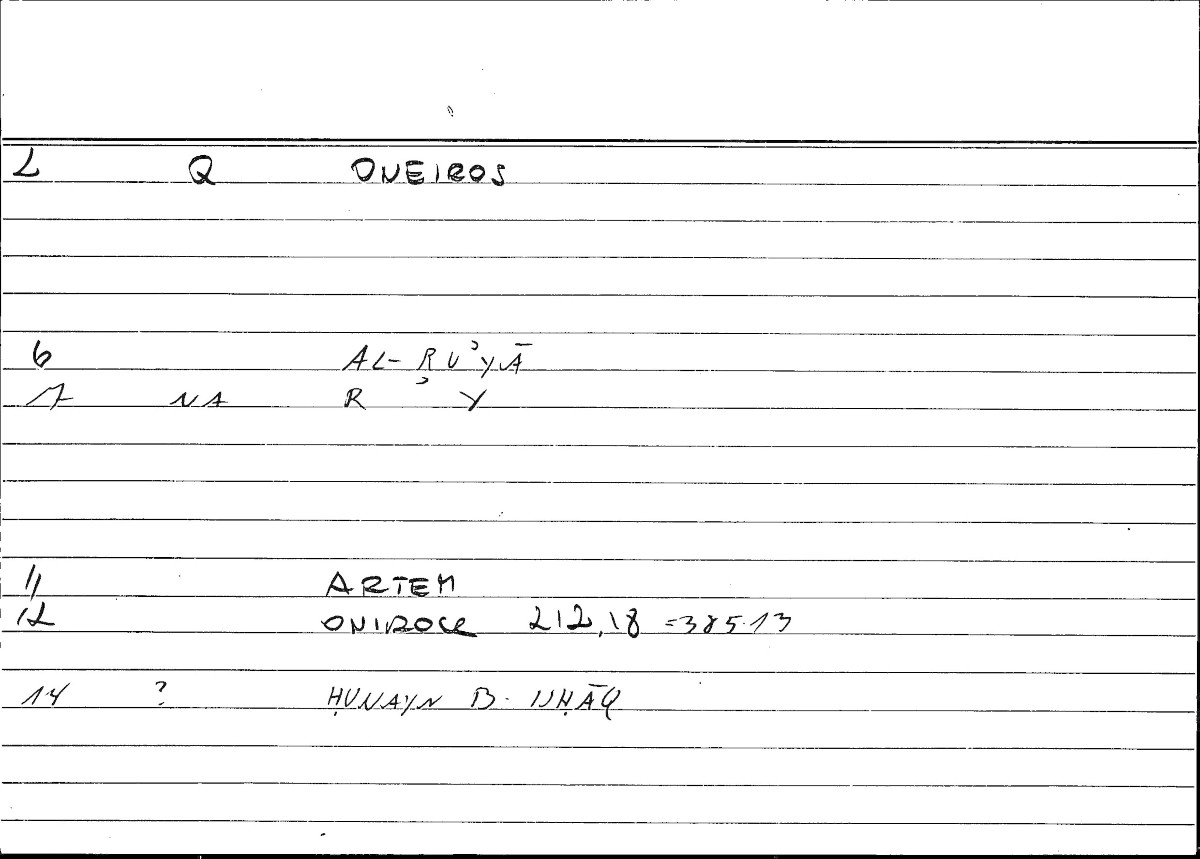 2 Q ONEIROS
6 AL-RUʾYĀ
7 NA RʾY
11 ARTEM
12 ONIROCR 212,18 =385.13
14 ? ḤUNAYN B. ISḤĀQ